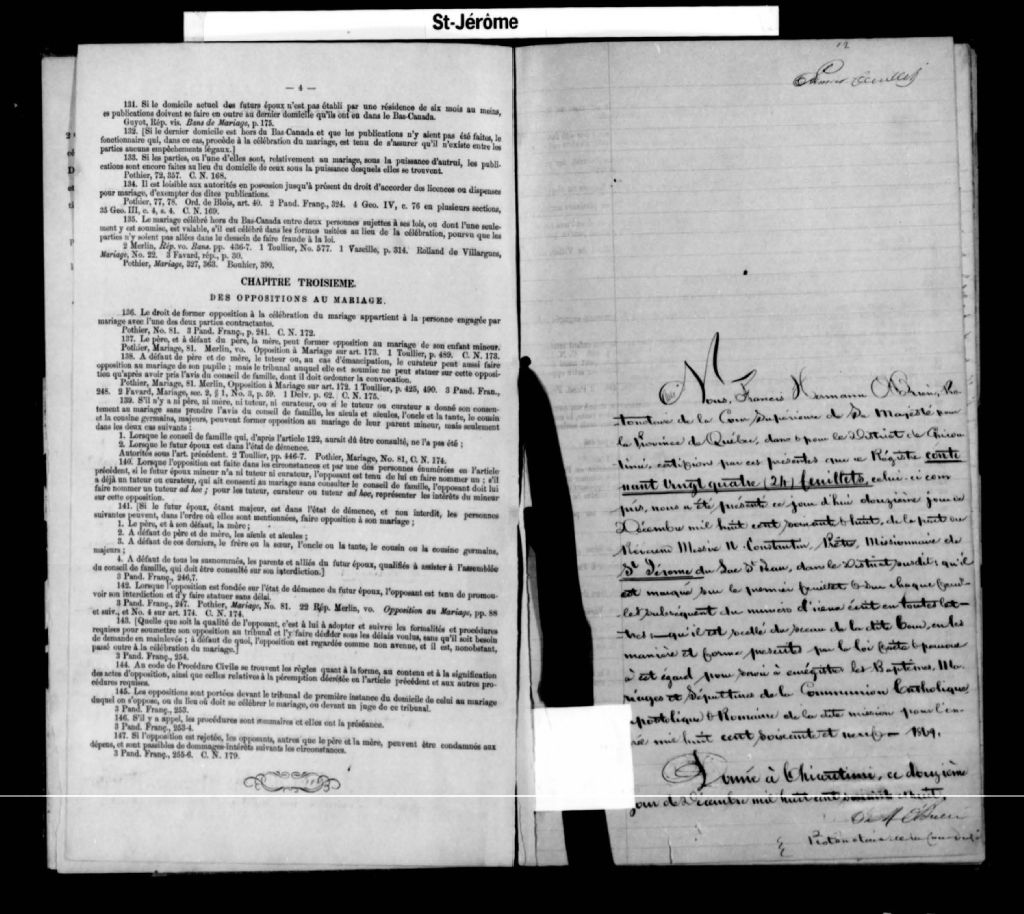 St-Jérôme
— 4 —
131. Si le domicile actuel des futurs époux n'est pas établi par une résidence de six mois au moins,
es publications doivent se faire en outre au dernier domicile qu'ils ont eu dans le Bas-Canada.
Guyot, Rép. vis. Bans de Mariage, p. 175.
132. [Si le dernier domicile est hors du Bas-Canada et que les publications n'y aient pas été faites, le
fonctionnaire qui, dans ce cas, procède à la célébration du mariage, est tenu de s'assurer qu'il n'existe entre les
parties aucuns empêchements légaux.]
133. Si les parties, ou l'une d'elles sont, relativement au mariage, sous la puissance d'autrui, les publi-
cations sont encore faites au lieu du domicile de ceux sous la puissance desquels elles se trouvent.
Pothier, 72, 357. C. N. 168.
134. Il est loisible aux autorités en possession jusqu'à présent du droit d'accorder des licences ou dispenses
pour mariage, d'exempter des dites publications.
Pothier, 77, 78. Ord. de Blois, art. 40. 2 Pand. Franç., 324. 4 Geo. IV, c. 76 en plusieurs sections,
35 Geo. III, c. 4, s. 4. C. N. 169.
135. Le mariage célébré hors du Bas-Canada entre deux personnes sujettes à ses lois, ou dont l'une seule-
ment y est soumise, est valable, s'il est célébré dans les formes usitées au lieu de la célébration, pourvu que les
parties n'y soient pas allées dans le dessein de faire fraude à la loi.
2 Merlin, Rép. vo. Bans. pp. 436-7. 1 Toullier, No. 577. 1 Vazeille, p. 314. Rolland de Villargues,
Mariage, No. 22. 3 Favard, rép., p. 30.
Pothier, Mariage, 327, 363. Bouhier, 390.
CHAPITRE TROISIEME.
DES OPPOSITIONS AU MARIAGE.
136. Le droit de former opposition à la célébration du mariage appartient à la personne engagée par
mariage avec l'une des deux parties contractantes.
Pothier, No. 81. 3 Pand. Franç., p. 241. C. N. 172.
137. Le père, et à défaut du père, la mère, peut former opposition au mariage de son enfant mineur.
Pothier, Mariage, 81. Merlin, vo. Opposition à Mariage sur art. 173. 1 Toullier, p. 489. C. N. 173.
138. A défaut de père et de mère, le tuteur ou, au cas d'émancipation, le curateur peut aussi faire
opposition au mariage de son pupile ; mais le tribunal auquel elle est soumise ne peut statuer sur cette opposi-
tion qu'après avoir pris l'avis du conseil de famille, dont il doit ordonner la convocation.
Pothier, Mariage, 81. Merlin, Opposition à Mariage sur art. 172. 1 Toullier, p. 425, 490. 3 Pand. Fran.,
248. 2 Favard, Mariage, sec. 2, § 1, No. 3, p. 59. 1 Delv. p. 62. C. N. 175.
139. S'il n'y a ni père, ni mère, ni tuteur, ni curateur, ou si le tuteur ou curateur a donné son consen-
tement au mariage sans prendre l'avis du conseil de famille, les aïeuls et aïeules, l'oncle et la tante, le cousin
et la cousine germains, majeurs, peuvent former opposition au mariage de leur parent mineur, mais seulement
dans les deux cas suivants :
1. Lorsque le conseil de famille qui, d'après l'article 122, aurait dû être consulté, ne l'a pas été ;
2. Lorsque le futur époux est dans l'état de démence.
Autorités sous l'art. précédent. 2 Toullier, pp. 446-7. Pothier, Mariage, No. 81, C. N. 174.
140. Lorsque l'opposition est faite dans les circonstances et par une des personnes énumérées en l'article
précédent, si le futur époux mineur n'a ni tuteur ni curateur, l'opposant est tenu de lui en faire nommer un ; s'il
a déjà un tuteur ou curateur, qui ait consenti au mariage sans consulter le conseil de famille, l'opposant doit lui
faire nommer un tuteur ad hoc ; pour les tuteur, curateur ou tuteur ad hoc, représenter les intérêts du mineur
sur cette opposition.
141. [Si le futur époux, étant majeur, est dans l'état de démence, et non interdit, les personnes
suivantes peuvent, dans l'ordre où elles sont mentionnées, faire opposition à son mariage ;
1. Le père, et à son défaut, la mère ;
2. A défaut de père et de mère, les aïeuls et aïeules ;
3. A défaut de ces derniers, le frère ou la sœur, l'oncle ou la tante, le cousin ou la cousine germains,
majeurs ;
4. A défaut de tous les susnommés, les parents et alliés du futur époux, qualifiés à assister à l'assemblée
du conseil de famille, qui doit être consulté sur son interdiction.]
3 Pand. Franç., 246,7.
142. Lorsque l'opposition est fondée sur l'état de démence du futur époux, l'opposant est tenu de promou-
voir son interdiction et d'y faire statuer sans délai.
3 Pand. Franç., 247. Pothier, Mariage, No. 81. 22 Rép. Merlin, vo. Opposition au Mariage, pp. 88
et suiv., et No. 4 sur art. 174. C. N. 174.
143. [Quelque que soit la qualité de l'opposant, c'est à lui à adopter et suivre les formalités et procédures
requises pour soumettre son opposition au tribunal et l'y faire décider sous les délais voulus, sans qu'il soit besoin
de demande en mainlevée ; à défaut de quoi, l'opposition est regardée comme non avenue, et il est, nonobstant,
passé outre à la célébration du mariage.]
3 Pand. Franç., 254.
144. Au code de Procédure Civile se trouvent les règles quant à la forme, au contenu et à la signification
des actes d'opposition, ainsi que celles relatives à la péremption décrétée en l'article précédent et aux autres pro-
cédures requises.
145. Les oppositions sont portées devant le tribunal de première instance du domicile de celui au mariage
duquel on s'oppose, ou du lieu où doit se célébrer le mariage, ou devant un juge de ce tribunal.
3 Pand. Franç., 253.
146. S'il y a appel, les procédures sont sommaires et elles ont la préséance.
3 Pand. Franç., 253-4.
147. Si l'opposition est rejetée, les opposants, autres que le père et la mère, peuvent être condamnés aux
dépens, et sont passibles de dommages-intérêts suivants les circonstances.
3 Pand. Franç., 255-6. C. N. 179.
Premier feuillet
Nous, Francis Hermann OBrien, Pro-
tonotaire de la Cour Supérieure de Sa Majesté pour
la Province de Québec, dans & pour le District de Chicou-
timi, certifions par ces présentes que ce Régistre conte
nant vingt quatre (24) feuillets, celui-ci com
pris, nous a été présenté ce jour d'hui douzième jour de
Décembre mil huit cent soixante & huit, de la part du
Révérend Messire N. Constantin, Ptre, Missionnaire de
St Jérome du Lac St Jean, dans le District susdit ; qu'il
est marqué sur le premier feuillet & sur chaque feuil-
let subséquent du numéro d'iceux écrit en toutes let-
tres — qu'il est scellé du sceau de la dite Cour, en la
manière et forme prescrits par la loi faite & pourvue
à cet égard pour servir à enrégistrer les Baptêmes, Ma-
riages et Sépultures de la Communion Catholique
postolique & Romaine de la dite mission pour l'an-
née mil huit cent soixante et neuf — 1869.
Donnée à Chicoutimi, ce douzième
jour de Décembre mil huit cent soixante et huit,
Protonotaire de la Cour